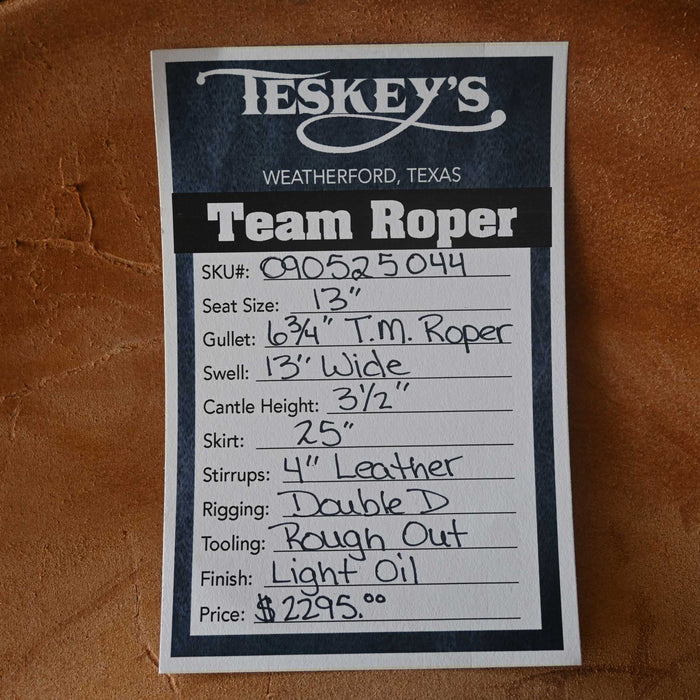 TESKEY'S
WEATHERFORD, TEXAS
Team Roper
SKU#: 090525044
Seat Size: 13"
Gullet: 6 3/4" T.M. Roper
Swell: 13" Wide
Cantle Height: 3 1/2"
Skirt: 25"
Stirrups: 4" Leather
Rigging: Double D
Tooling: Rough Out
Finish: Light Oil
Price: $2295.00